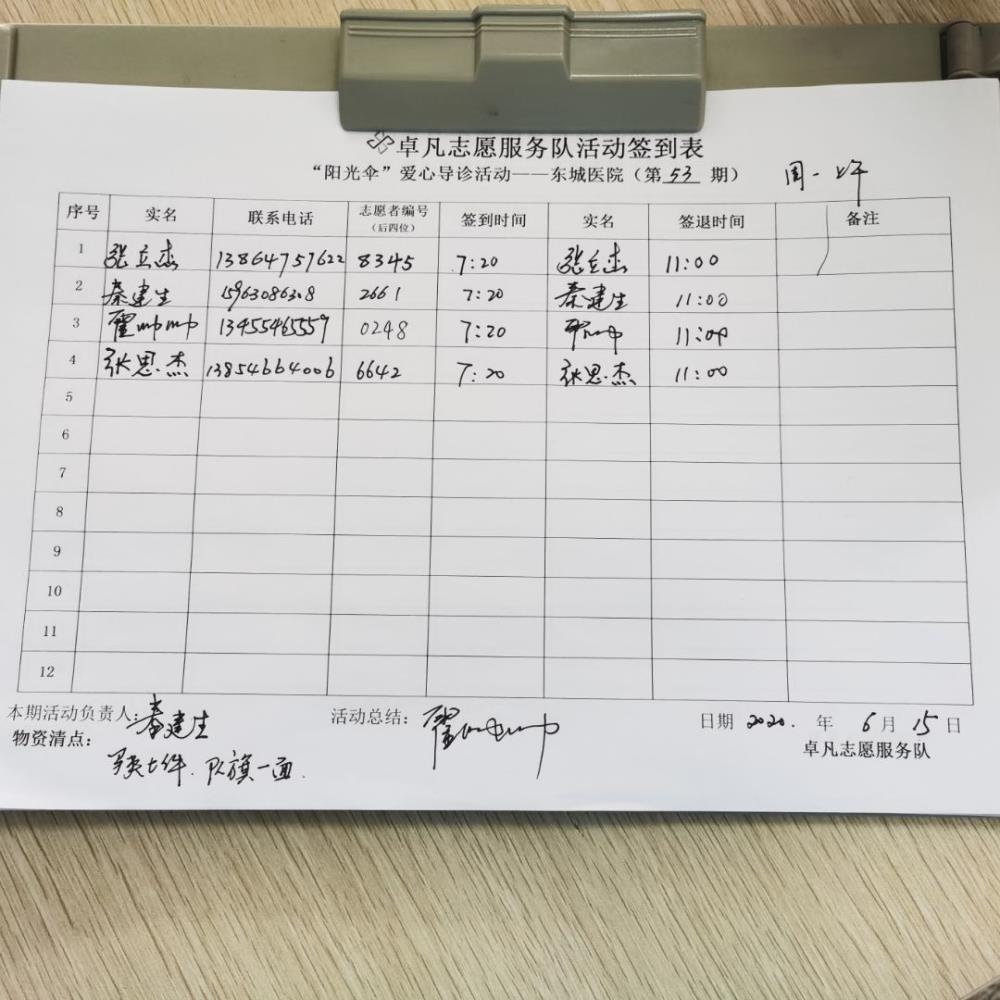 卓凡志愿服务队活动签到表
“阳光伞”爱心导诊活动——东城医院（第 53 期） 周一上午
序号 实名 联系电话 志愿者编号（后四位） 签到时间 实名 签退时间 备注
1 张立杰 13864757622 8345 7:20 张立杰 11:00
2 秦建生 15963086308 2661 7:20 秦建生 11:00
3 霍帅帅 13455465559 0248 7:20 11:00
4 张思杰 13854664006 6642 7:20 张思杰 11:00
5
6
7
8
9
10
11
12
本期活动负责人：秦建生 活动总结：霍帅帅 日期 2020. 年 6 月 15 日
物资清点： 卓凡志愿服务队
七件. 队旗一面.